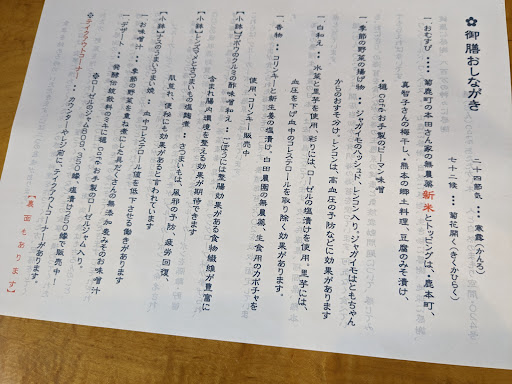 ✿ 御膳おしながき
二十四節気 ・・・ 寒露(かんろ)
七十二候 ・・・ 菊花開く(きくかひらく)
一 おむすび ・・・ 菊鹿町の本田さん家の無農薬新米とトッピングは、鹿本町、
真智子さんの梅干し、熊本の郷土料理、豆腐のみそ漬け、
楓cafeお手製のピーマン味噌
一 季節の野菜の揚げ物 ・・・ ジャガイモのハッシュド、レンコン入り。ジャガイモはともちゃん
からのおすそ分け。レンコンは、高血圧の予防などに効果があります
一 白和え ・・ 水菜と里芋を使用、彩りには、ローゼルの塩漬けを使用。里芋には、
血圧を下げ血中のコレステロールを取り除く効果があります。
一 香物 ・・ コリンキーと新生姜の塩漬け。白田農園の無農薬、生食用のカボチャを
使用、コリンキー販売中
【小鉢】ゴボウのクルミの酢味噌和え ・・ ごぼうには整腸効果がある食物繊維が豊富に
含まれ腸内環境を整える効果が期待できます
【小鉢】レンズマメとさつまいもの塩麹煮 ・・ さつまいもは、風邪の予防、疲労回復、
肌荒れ、便秘にも効果があると言われています
【小鉢】えのきのうまいうま煮 ・・ 血中コレステロール値を低下させる働きがあります
一 お味噌汁 ・・ 季節の野菜を重ね煮にした具だくさんの無添加麦みそのお味噌汁
一 デザート ・・ 発酵伝統飲料のミキに楓cafeお手製のローゼルのジャム入り。
✿ローゼルのジャム600、700縁 塩漬け250縁で販売中!
✿テイクアウトコーナー ・・ カウンターやレジ前に、テイクアウトコーナーがあります。
【裏面もあります】